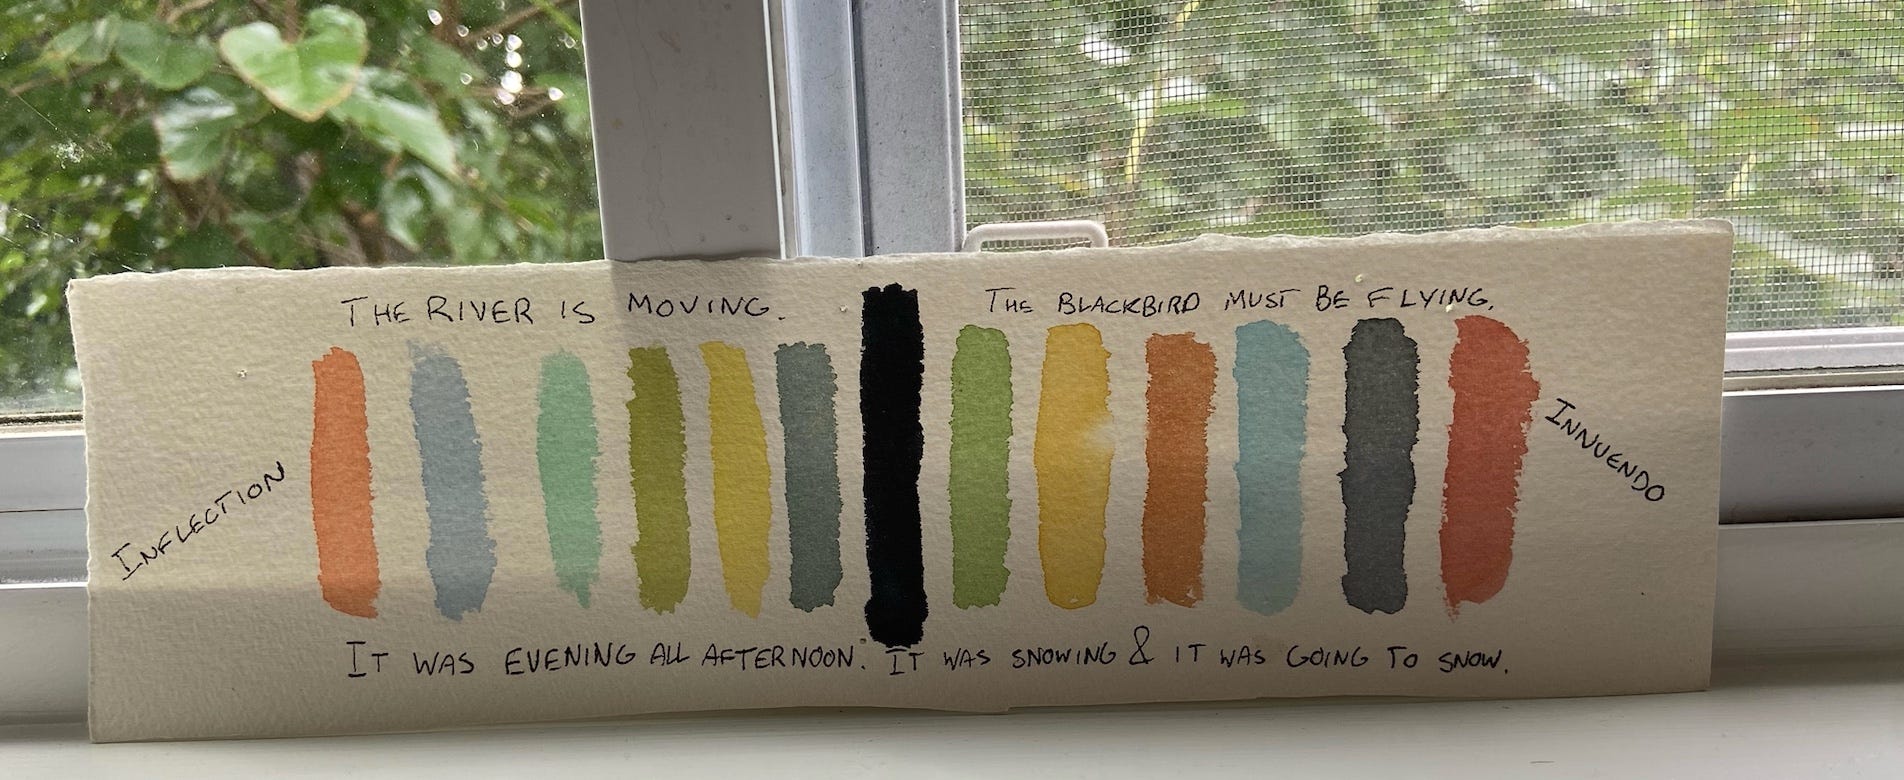 THE RIVER IS MOVING.
THE BLACKBIRD MUST BE FLYING.
INFLECTION
INNUENDO
IT WAS EVENING ALL AFTERNOON. IT WAS SNOWING & IT WAS GOING TO SNOW.